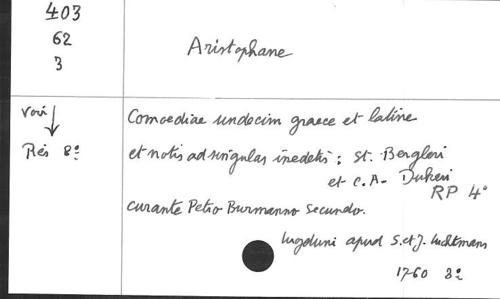 403
62
3
Aristophane
voir
Rés 8º
Comoediae undecim graece et latine
et notis ad singulas ineditis; St. Bergleri
et C.A. Dukeri
RP 4º
curante Petro Burmanno Secundo.
Lugduni apud S. et J. Luchtmans
1760 8º